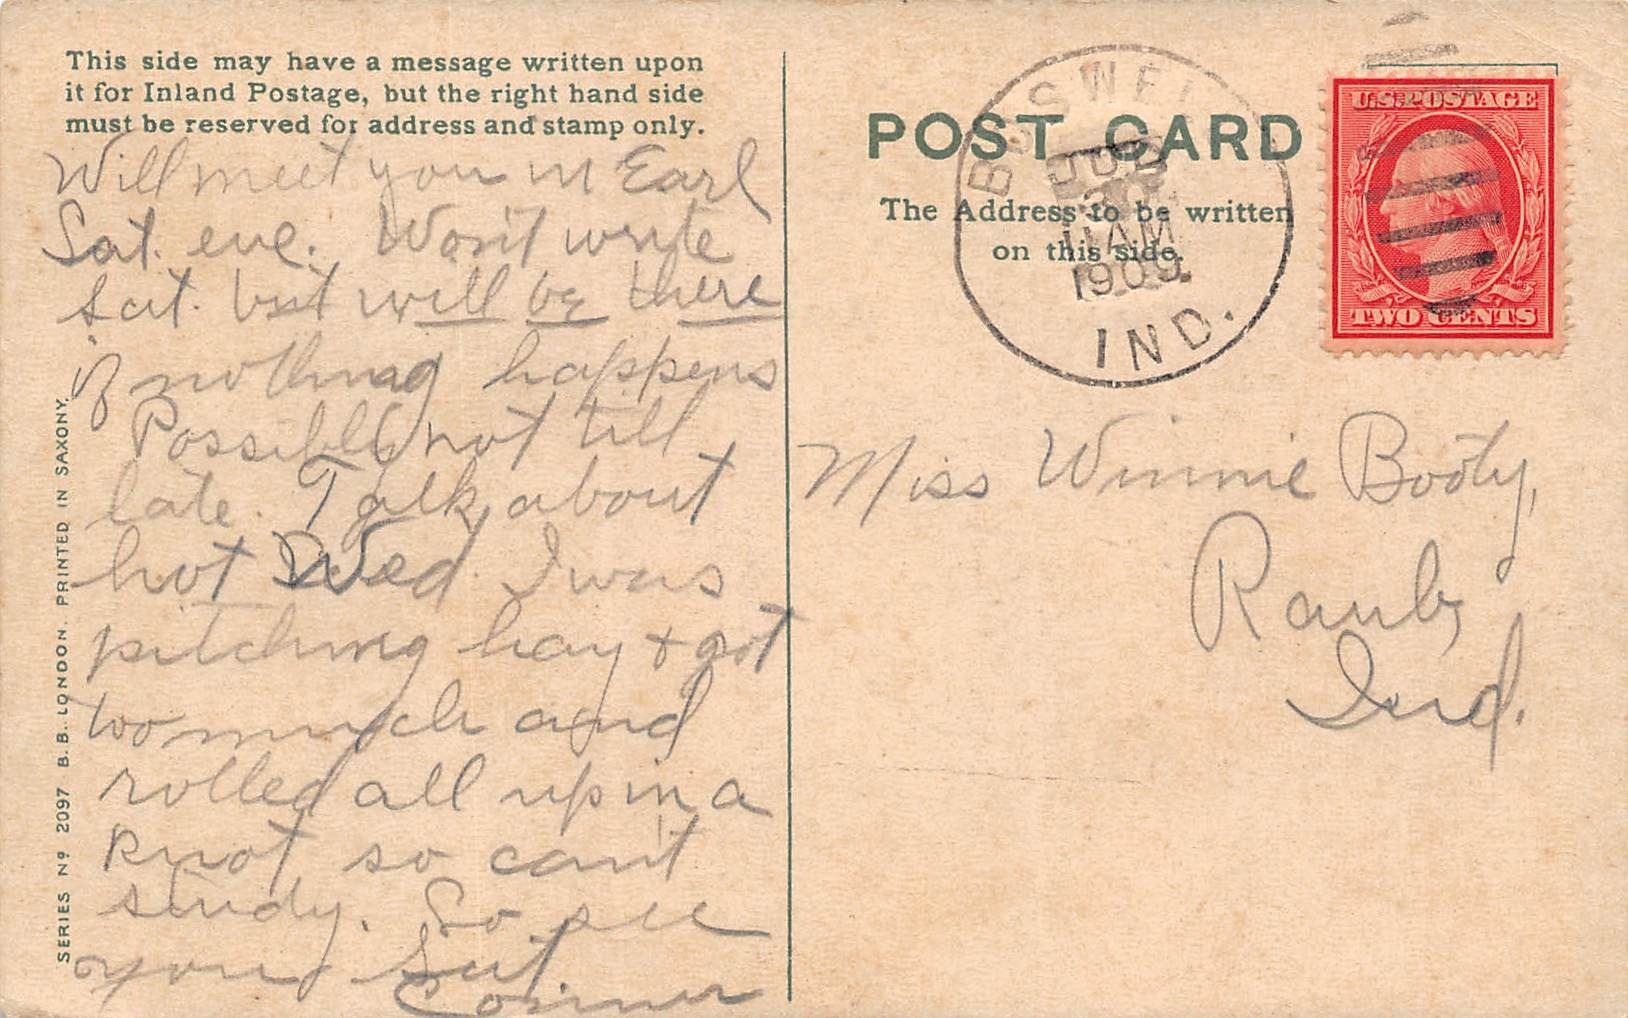 This side may have a message written upon
it for Inland Postage, but the right hand side
must be reserved for address and stamp only.
Will meet you in Earl
Sat. eve. Won't write
Sat. but will be there
if nothing happens
Possibly not till
late. Talk about
hot Wed. I was
pitching hay & got
too much and
rolled all up in a
knot so can't
study. So see
you Sat.
SERIES Nº 2097 B.B. LONDON. PRINTED IN SAXONY.
POST CARD
The Address to be written
on this side.
BOSWELL
30
11AM
1909
IND.
U.S. POSTAGE
TWO CENTS
Miss Winnie Booty,
Raub,
Ind.